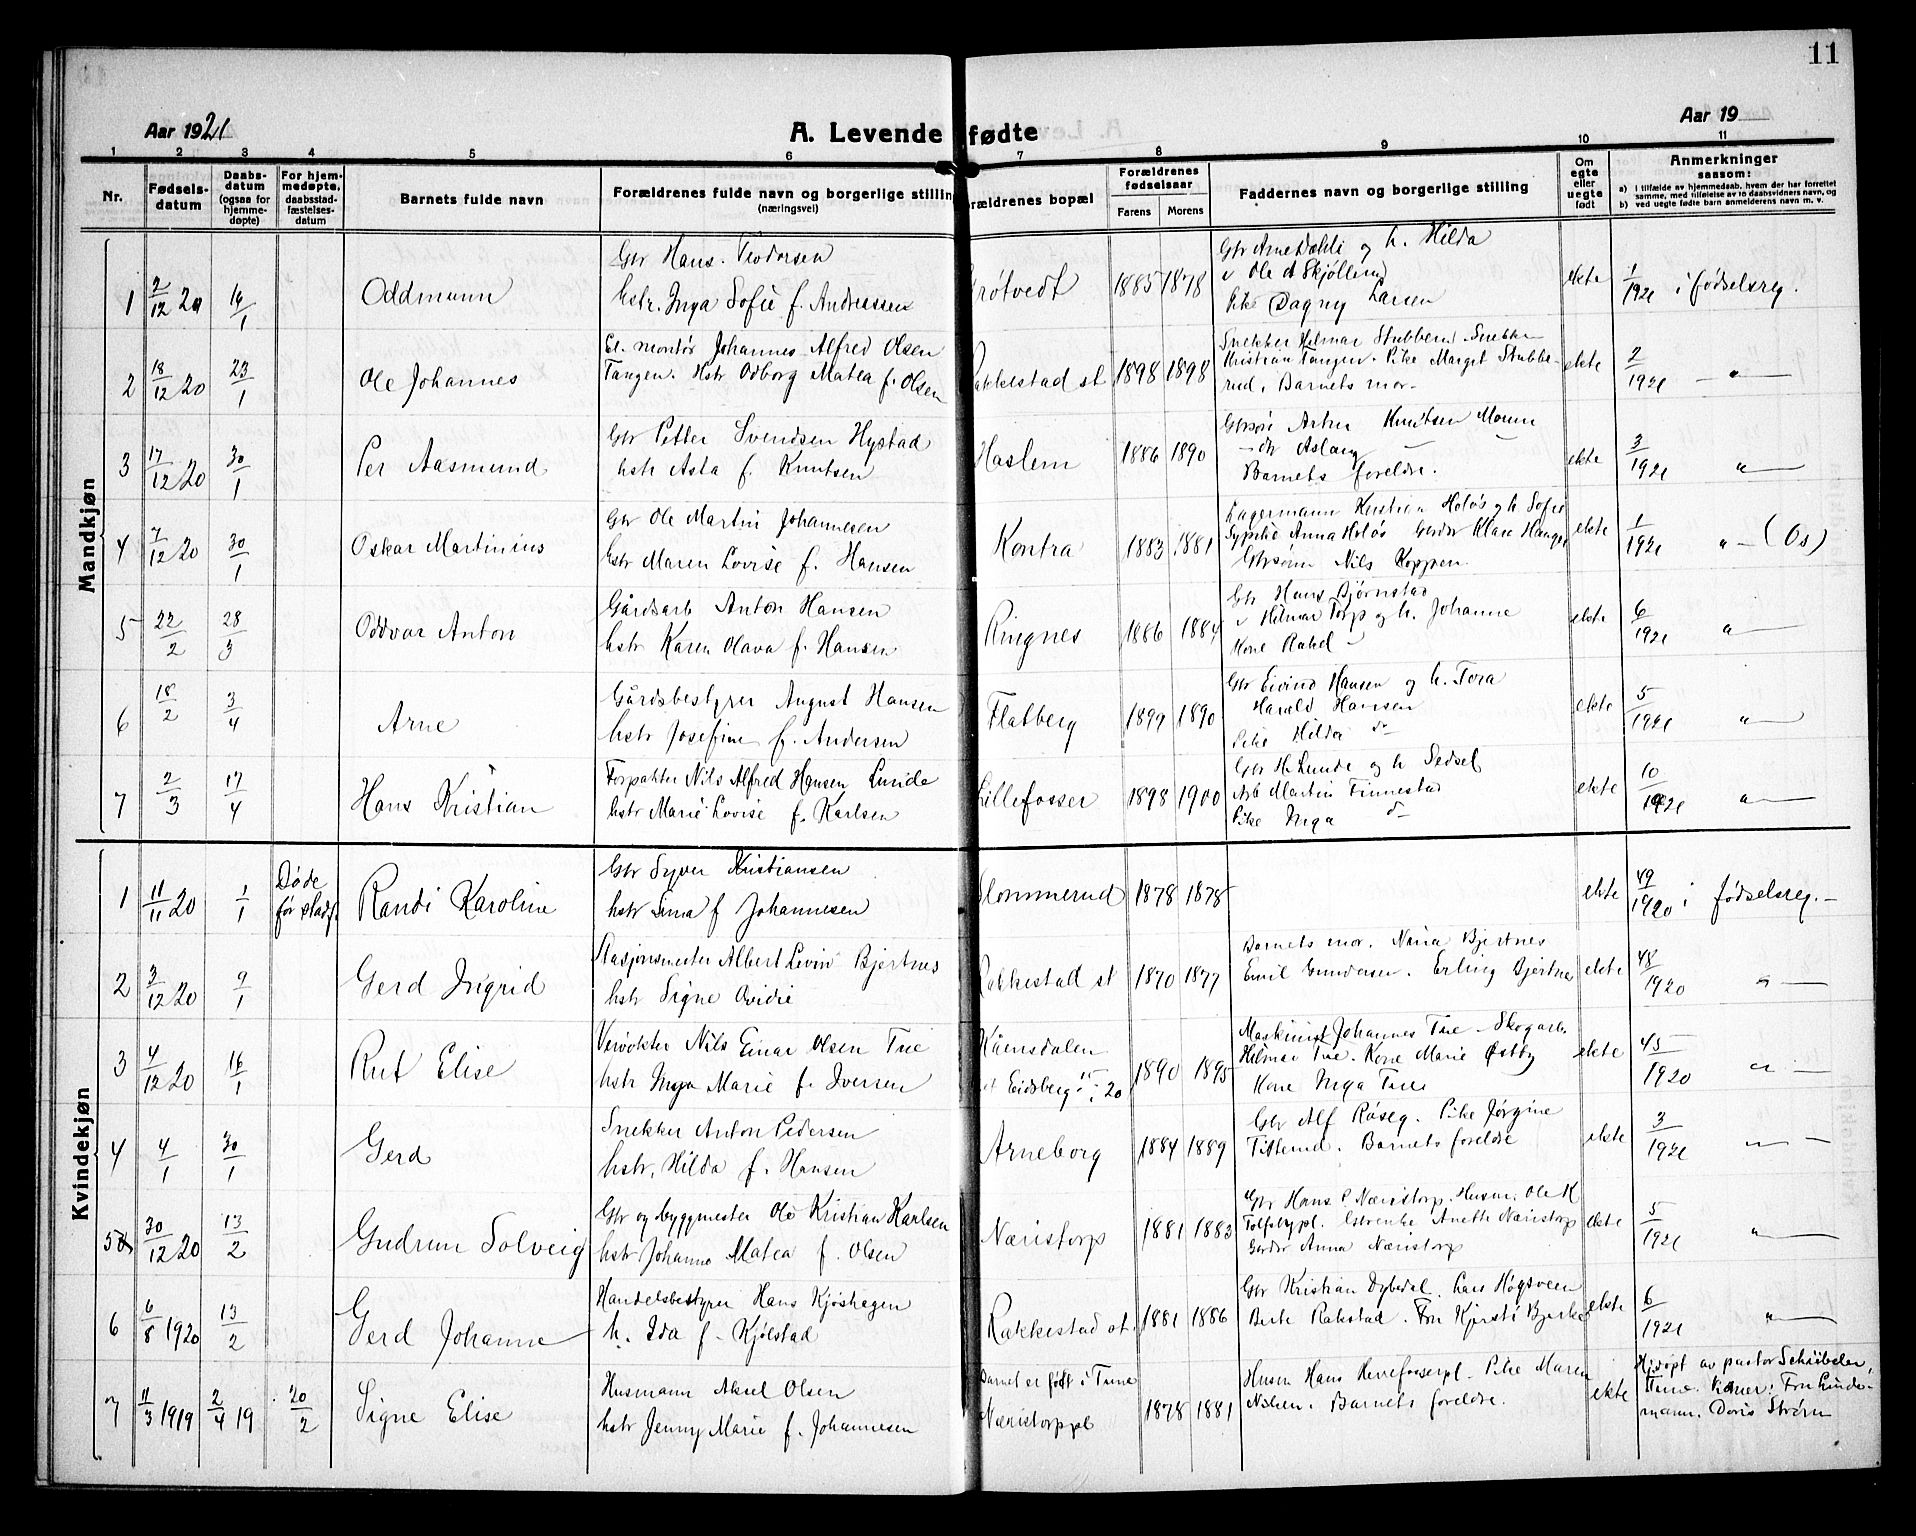 11
Aar 1921
A. Levende fødte
Aar 19
1 2 3 4 5 6 7 8 9 10 11
Nr.
Fødselsdatum
Daabsdatum (ogsaa for hjemmedøpte)
For hjemmedøpte, daabsstadfæstelsesdatum
Barnets fulde navn
Forældrenes fulde navn og borgerlige stilling (næringsvei)
rældrenes bopæl
Forældrenes fødselsaar
Farens Morens
Faddernes navn og borgerlige stilling
Om egte eller uegte født
Anmerkninger saasom:
a) i tilfælde av hjemmedaab, hvem der har forrettet samme, med tilføielse av to daabsvidners navn, og
b) ved uegte fødte barn anmelderens navn m. v.
Mandkjøn
1 2/12 20 16/1 Oddmann
Gbr Hans Teodorsen
hstr. Inga Sofie f. Andreassen
rötvedt 1885 1878
Gbr Arne Dæhli og h. Hilda
v Ole A Skjøllerud
Pike Dagny Larsen
ekte 1/1921 i fødselsreg.
2 18/12 20 23/1 Ole Johannes
El. montör Johannes Alfred Olsen
Tangen. Hstr Odborg Matea f. Olsen
akkestad st 1898 1898
Snekker Hilmar Stubberud Snekker
Kristian Tangen. Pike Margit Stubberud, Barnets mor.
ekte 2/1921 — " —
3 17/12 20 30/1 Per Aasmund
Gbr Petter Svendsen Hystad
hstr Asta f. Knutsen
Haslem 1886 1890
Gbrsön Knutsen
Aslaug
Barnets foreldre.
ekte 3/1921 " —
4 7/12 20 30/1 Oskar Martinius
Gbr Ole Martin Johannesen
Gstr Maren Lovise f. Hansen
Kontra 1883 1881
Lagermann Kristian Holøs og h Sofie
Anna Holøs Klara
Gbrsönn Nils Koppen
ekte 1/1921 " — (Os)
5 22/2 28/3 Oddvar Anton
Gårdsarb Anton Hansen
hstr Karen Olava f. Hansen
Ringnes 1886 1884
Gbr Hans Bjørnstad
v Hilmar Torp og h. Johanne
Kone Rakel —
ekte 6/1921 " —
6 18/2 3/4 Arne
Gårdsbestyrer August Hansen
hstr Josefine f. Andersen
Flatberg 1899 1890
Gbr Eivind Hansen og h. Tora
Harald Hansen
Pike Hilda do
ekte 5/1921 " —
7 2/3 17/4 Hans Kristian
Forpakter Nils Alfred Hansen Lunde
hstr Marie Lovise f. Karlsen
Lillefosser 1898 1900
Gbr H. Lunde og h Sedsel
Arb Martin Finnestad
Pike Inga do
ekte 10/1921 " —
Kvindekjøn
1 11/11 20 1/1 Døde før stadf. Randi Karoline
Gbr Syver Kristiansen
hstr Lina f Johannesen
Slommerud 1878 1878
ekte 49/1920 i fødselsreg. —
2 3/12 20 9/1 Gerd Ingrid
Stasjonsmester Albert Levin Bjertnes
hstr Signe Ovidie
Rakkestad st 1870 1877
Barnets mor. Naria Bjertnes
Emil Gundersen. Erling Bjertnes
ekte 48/1920 " —
3 4/12 20 16/1 Rut Elise
Nils Einar Olsen Tue
hstr Inga Marie f. Iversen
Eidsberg 20 1890 1895
Maskinist Johannes Tue – Skogarb.
Hilmar Tue. Kone Marie Østby
Kone Inga Tue
ekte 45/1920 " —
4 4/1 30/1 Gerd
Snekker Anton Pedersen
hstr, Hilda f. Hansen
Arneborg 1884 1889
Gbr Alf Röseg. Pike Jørgine
Titterud. Barnets foreldre
ekte 3/1921 " —
5 30/12 20 13/2 Gudrun Solveig
Gbr og byggmester Ole Kristian Karlsen
hstr Johanne Matea f. Olsen
Næristorp 1881 1883
Gbr Hans P Næristorp. Husm. Ole K
Tolfsbypl. Gbrenke Anette Næristorp
Gerdbr Anna Næristorp
ekte 5/1921 " —
6 6/8 1920 13/2 Gerd Johanne
Handelsbestyrer Hans Kjøshagen
h. Ida f. Kjölstad
Rakkestad st. 1881 1886
Gbr Kristian Dybedal. Lars Høgsveen
Berte Rakstad. Fru Kjersti
ekte 6/1921 " —
7 11/3 1919 2/4 19 20/2 Signe Elise
Husmann Aksel Olsen
hstr Jenny Marie f. Johannesen
Barnet er født i Tune
Næristorppl 1878 1881
Husm Hans Pike Maren
Nilsen. Barnets foreldre.
ekte
Hjdøpt av pastor Schibeler,
Tune. Vidner: Fru Lindemann. Doris Strøm